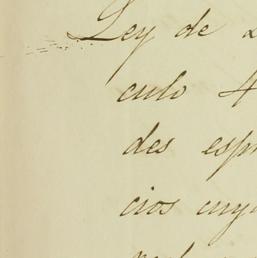 Ley de
culo 4
des esp
cios cuy